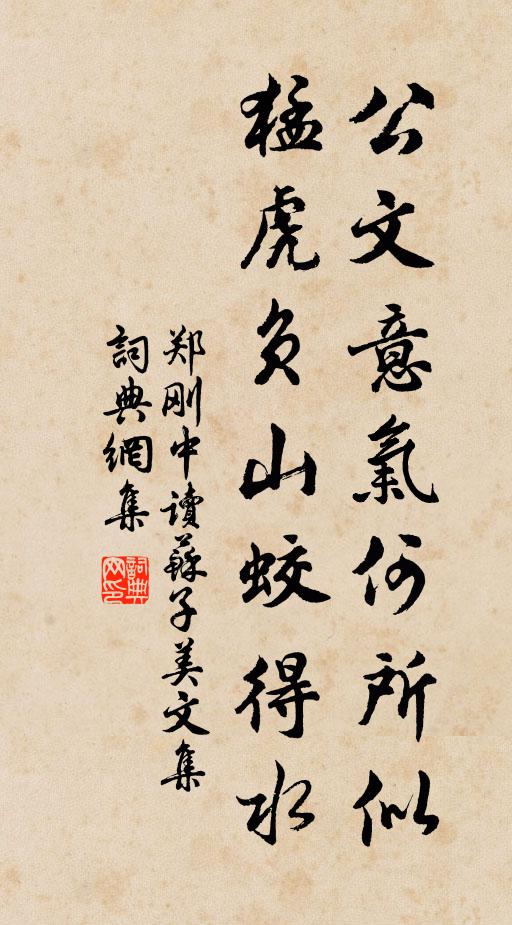 公文意氣何所似
猛虎負山蛟得水
郑刚中讀蘇子美文集
詞典網集
詞典网印